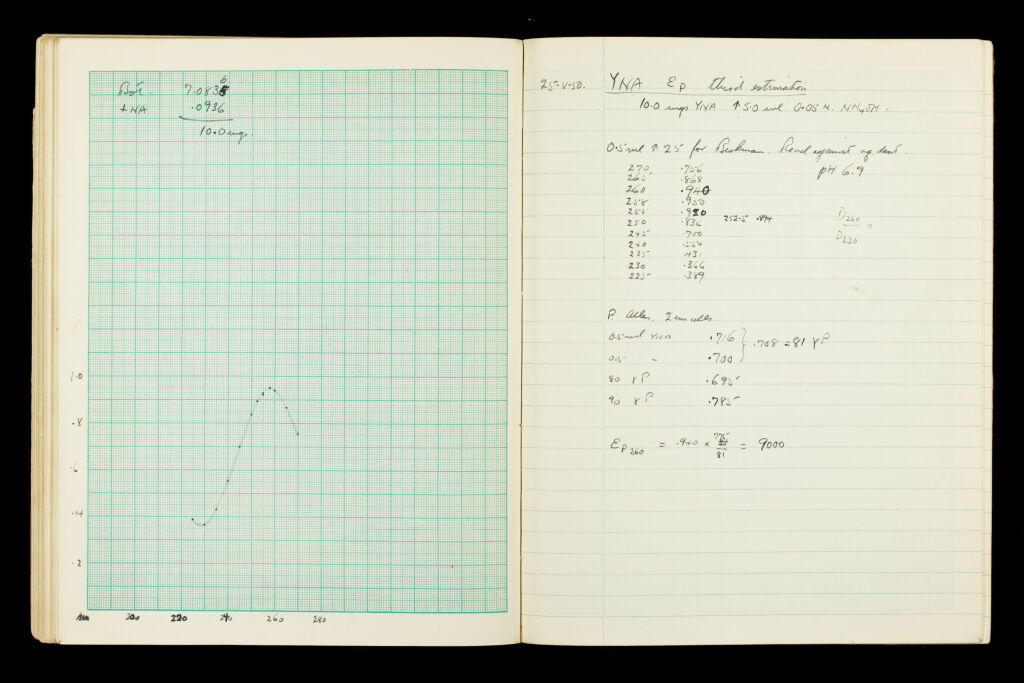 Bot. 7.0836
+ NA .0936
10.0 mgs.
1.0
.8
.6
.4
.2
200 220 240 260 280
25-V-50. YNA EP third estimation
10.0 mgs YNA ↑ 5.0 ml 0.05 N. NH4OH.
0.5 ml ↑ 25 for Beckman. Read against aq dest.
270 .756 pH 6.9
265 .868
260 .940
258 .950
255 .920
250 .836 252.5 .894
245 .700
240 .554
235 .431
230 .366
225 .389
D260
D230 =
P Allen. 2 cm cells
0.5 ml YNA .716
.708 = 81 γP
0.5 " .700
80 γP .695
90 γP .785
EP260 = .940 × 775/81 = 9000